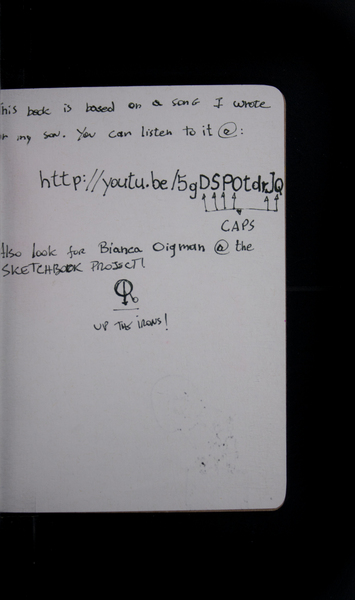 This book is based on a song I wrote
or my son. You can listen to it @:
http://youtu.be/5gDSPOtdrJQ
CAPS
Also look for Bianca Oigman @ the
SKETCHBOOK PROJECT!
UP THE IRONS!